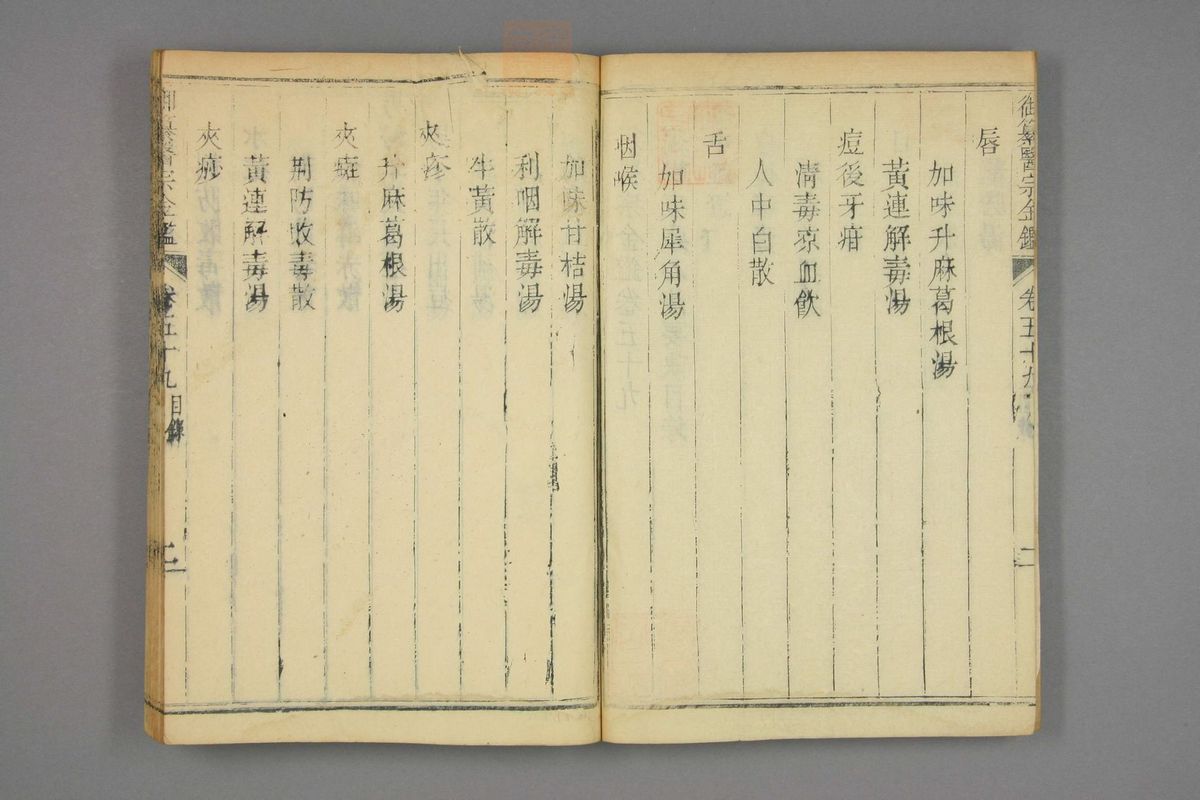 御纂醫宗金鑑 卷五十九
唇
加味升麻葛根湯
黃連解毒湯
痘後牙疳
清毒凉血飲
人中白散
舌
加味犀角湯
咽喉
加味甘桔湯
利咽解毒湯
牛黃散
夾疹
升麻葛根湯
夾斑
荆防敗毒散
黃連解毒湯
夾痧
御纂醫宗金鑑 卷五十九 目錄 二